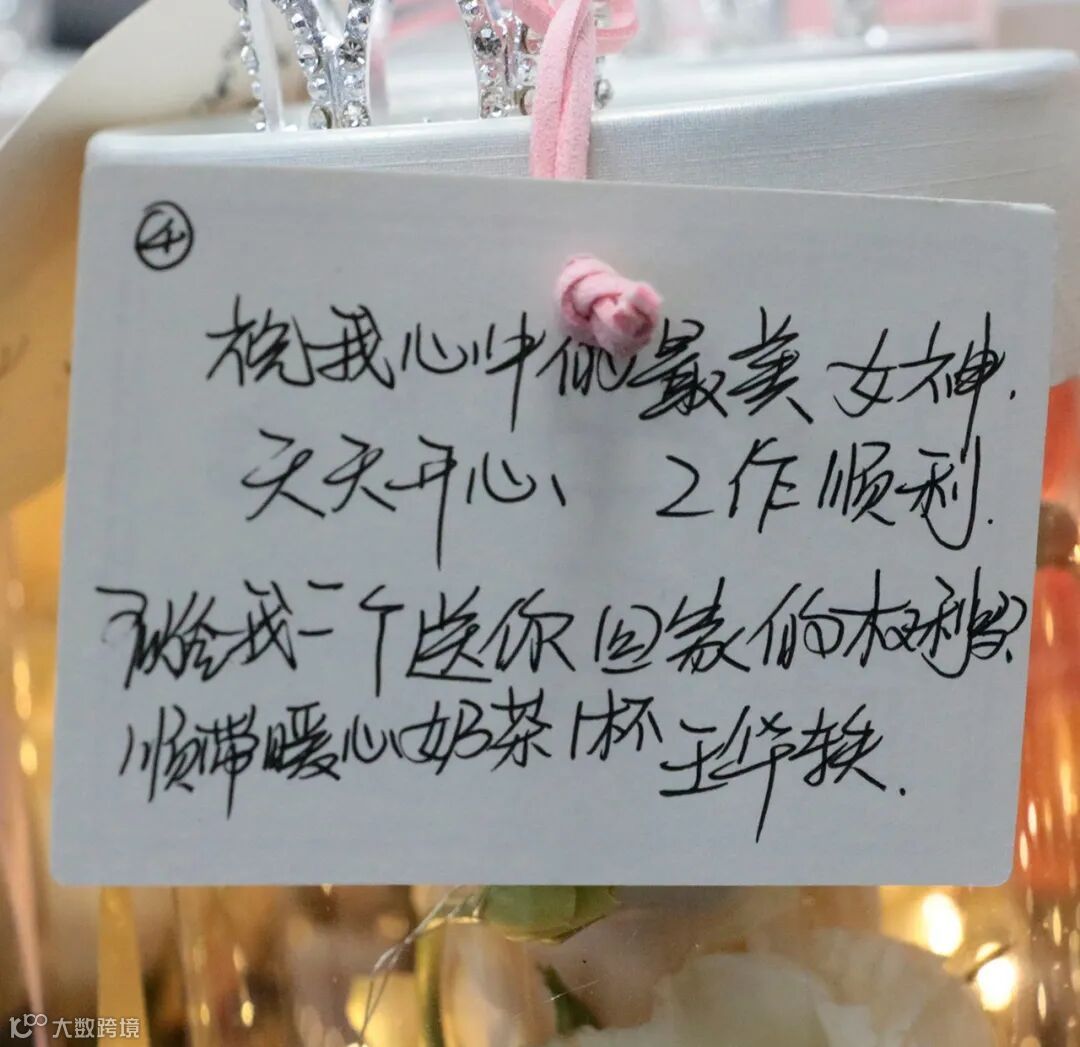 ④
祝我心中的最美女神.
天天开心、工作顺利.
给我一个送你回家的权利
顺带暖心奶茶1杯 王华轶.
大数跨境